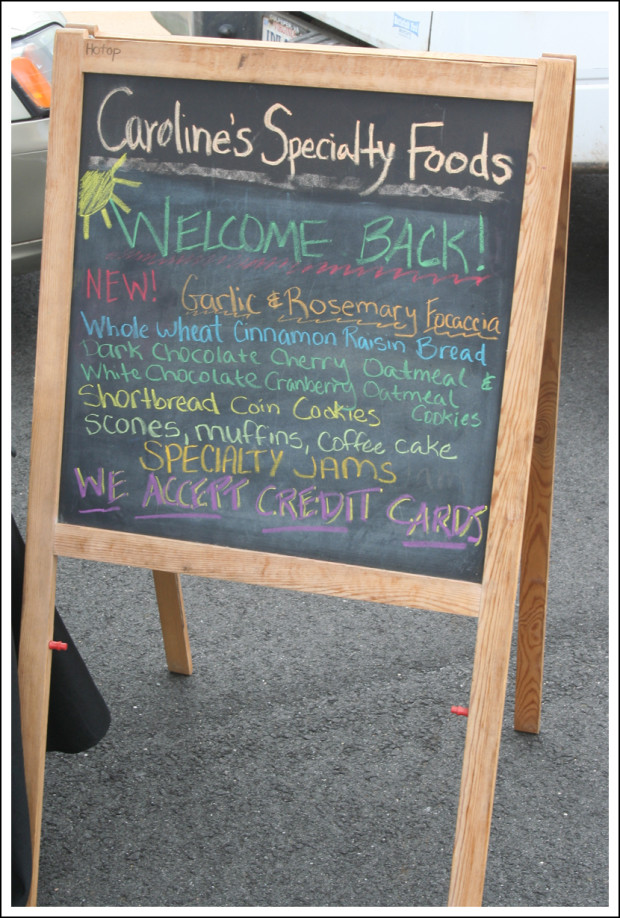 Hotop
Caroline's Specialty Foods
WELCOME BACK!
NEW! Garlic & Rosemary Focaccia
Whole Wheat Cinnamon Raisin Bread
Dark Chocolate Cherry Oatmeal &
White Chocolate Cranberry Oatmeal
Cookies
Shortbread Coin Cookies
Scones, muffins, Coffee cake
SPECIALTY JAMS
WE ACCEPT CREDIT CARDS